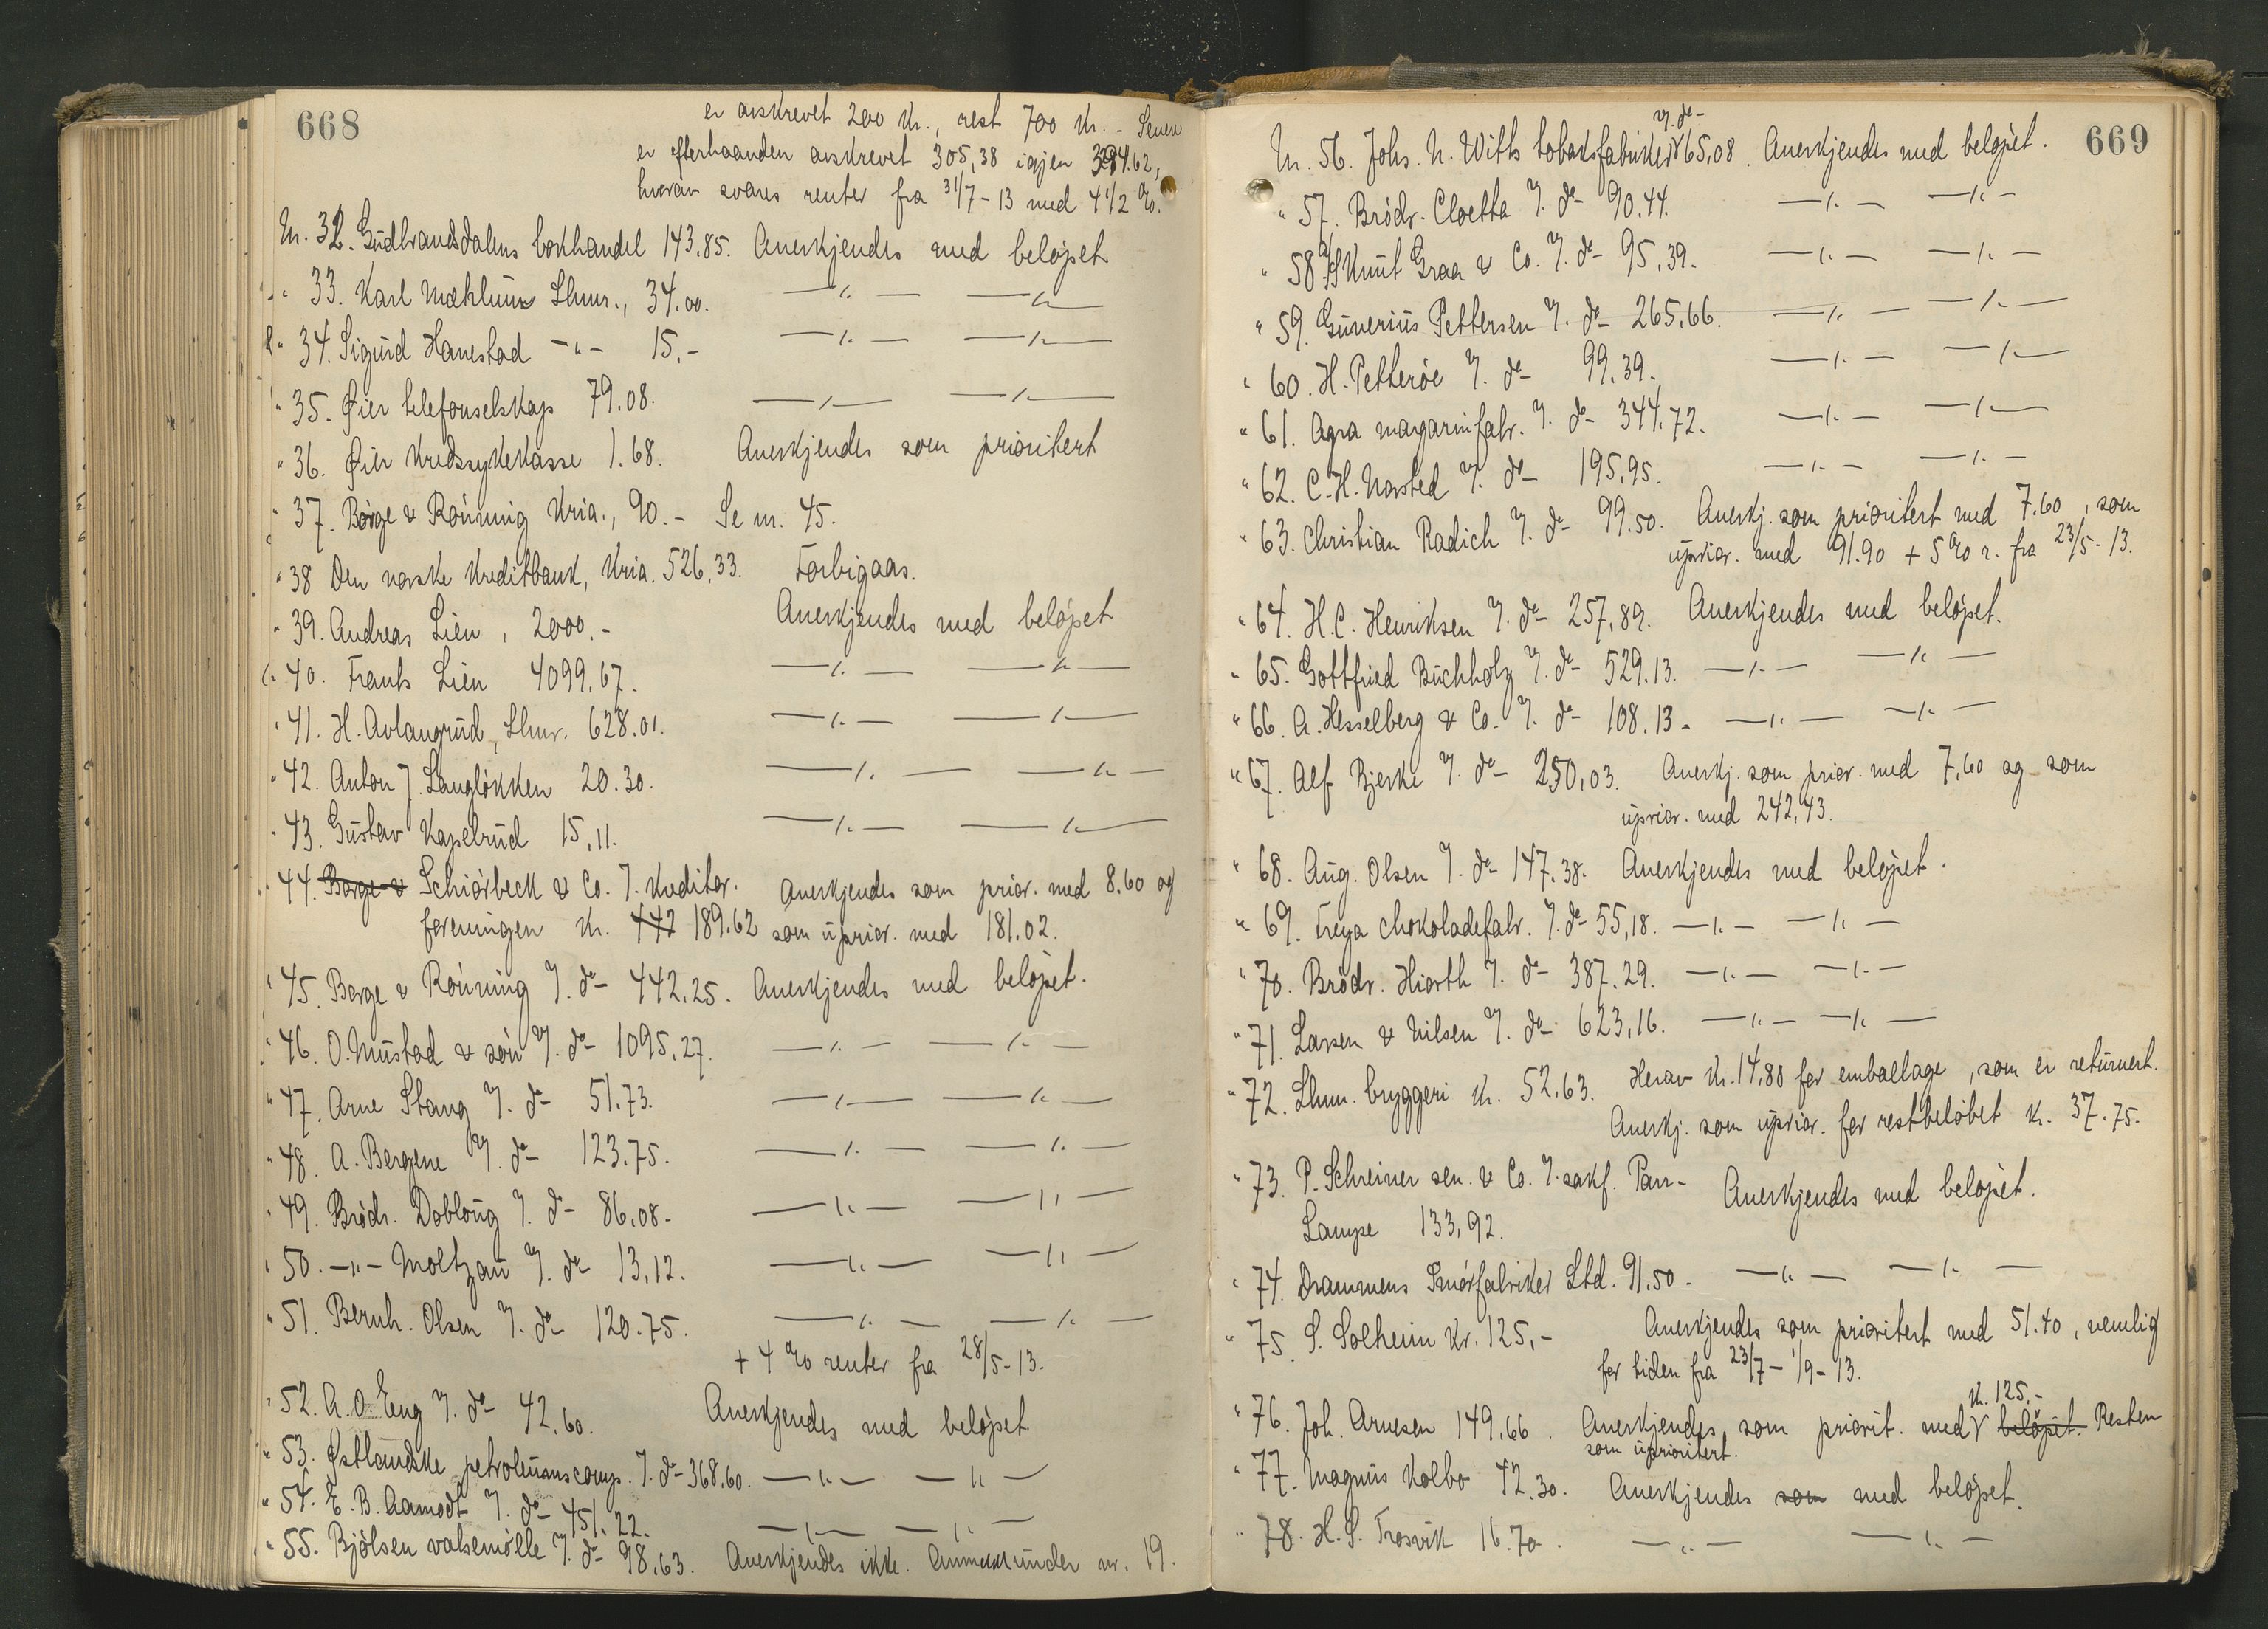 668
er avskrevet 200 kr., rest 700 kr. - Senere
er efterhaanden avskrevet 305,38 igjen 394.62,
hvorav svares renter fra 31/7-13 med 4 1/2 %.
Nr. 32. Gudbrandsdalens bokhandel 143.85. Anerkjendes med beløpet
" 33. Karl Mæhlum Lhmr., 34.00. —"— —"—
" 34. Sigurd Hanestad —"— 15.- —"— —"—
" 35. Øier telefonselskap 79.08. —"— —"—
" 36. Øier kredssykekasse 1.68. Anerkjendes som prioritert
" 37. Borge & Rønning Kria., 90.- Se nr. 45.
" 38 Den norske Kreditbank, Kria. 526,33. Forbigaas.
" 39. Andreas Lien, 2000.- Anerkjendes med beløpet
" 40. Frants Lien 4099,67. —"— —"—
" 41. H. Avlangrud, Lhmr. 628.01. —"— —"—
" 42. Anton J. Langløkken 20.30. —"— —"—
" 43. Gustav Kapelrud 15,11. —"— —"—
" 44. Borge & Schiørbeck & Co. v. Kreditor. Anerkjendes som prior. med 8.60 og
foreningen kr. 442 189.62 som uprior. med 181.02.
" 45. Borge & Rønning v. do - 442,25. Anerkjendes med beløpet.
" 46. O. Mustad & søn v. do - 1095,27. —"— —"—
" 47. Arne Stang v. do - 51.73. —"— —"—
" 48. A. Bergene v. do - 123.75. —"— —"—
" 49. Brødr. Dobloug v. do - 86,08. —"— —"—
" 50. —"— Moltzau v. do - 13,12. —"— —"—
" 51. Bernh. Olsen v. do - 120.75. —"— —"—
+ 4 % renter fra 28/5-13.
" 52. A. O. Eng v. do - 42,60. Anerkjendes med beløpet
" 53. Østlandske petroleumscomp. v. do - 368.60. —"— —"—
" 54. E. B. Aamodt v. do - 451.22. —"— —"—
" 55. Bjølsen valsemølle v. do - 98,63. Anerkjendes ikke. Anmeldt under nr. 19.
669
v. do -
Nr. 56. Johs. N. Witts tobaksfabrikker 65,08. Anerkjendes med beløpet.
" 57. Brødr. Cloetta v. do - 90.44. —"— —"—
" 58. A/S Knut Graa & Co. v. do - 95,39. —"— —"—
" 59. Gunerius Pettersen v. do - 265,66. —"— —"—
" 60. H. Petterøe v. do - 99,39. —"— —"—
" 61. Agra margarinfabr. v. do - 344,72. —"— —"—
" 62. C. H. Narsted v. do - 195,95. —"— —"—
" 63. Christian Radich v. do - 99.50. Anerkj. som prioritert med 7.60, som
uprior. med 91.90 + 5 % r. fra 23/5-13.
" 64. H. C. Henriksen v. do - 257,89. Anerkjendes med beløpet.
" 65. Gottfried Buchholz v. do - 529.13. —"— —"—
" 66. A. Hesselberg & Co. v. do - 108.13 - —"— —"—
" 67. Alf Bjerke v. do - 250,03. Anerkj. som prior. med 7,60 og som
uprior. med 242,43.
" 68. Aug. Olsen v. do - 147.38. Anerkjendes med beløpet.
" 69. Freya chokoladefabr. v. do - 55,18. —"— —"—
" 70. Brødr. Hiorth v. do - 387.29. —"— —"—
" 71. Larsen & Nilsen v. do - 623,16. —"— —"—
" 72. Lhmr. bryggeri kr. 52,63. Herav kr. 14,88 for emballage, som er returnert.
Anerkj. som uprior. for restbeløbet kr. 37.75.
" 73. P. Schreiner sen. & Co. v. sakf. Parr- Anerkjendes med beløpet.
Lampe 133,92.
" 74. Drammens Smørfabriker Ltd. 91,50 - —"— —"—
" 75. S. Solheim kr. 125,- Anerkjendes som prioritert med 51.40, nemlig
for tiden fra 23/7 - 1/9-13.
kr. 125.-
" 76. Joh. Arnesen 149,66. Anerkjendes som priorit. med beløpet. Resten
som uprioritert.
" 77. Magnus Kolbo 42.30. Anerkjendes som med beløpet.
" 78. H. S. Trosvik 16.70. —"— —"—